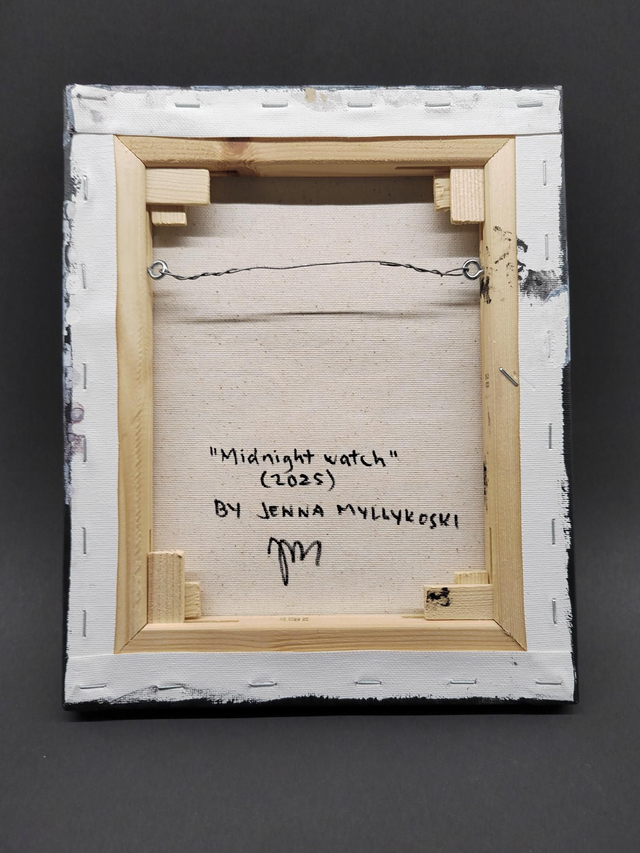 "Midnight watch"
(2025)
BY JENNA MYLLYKOSKI
JM